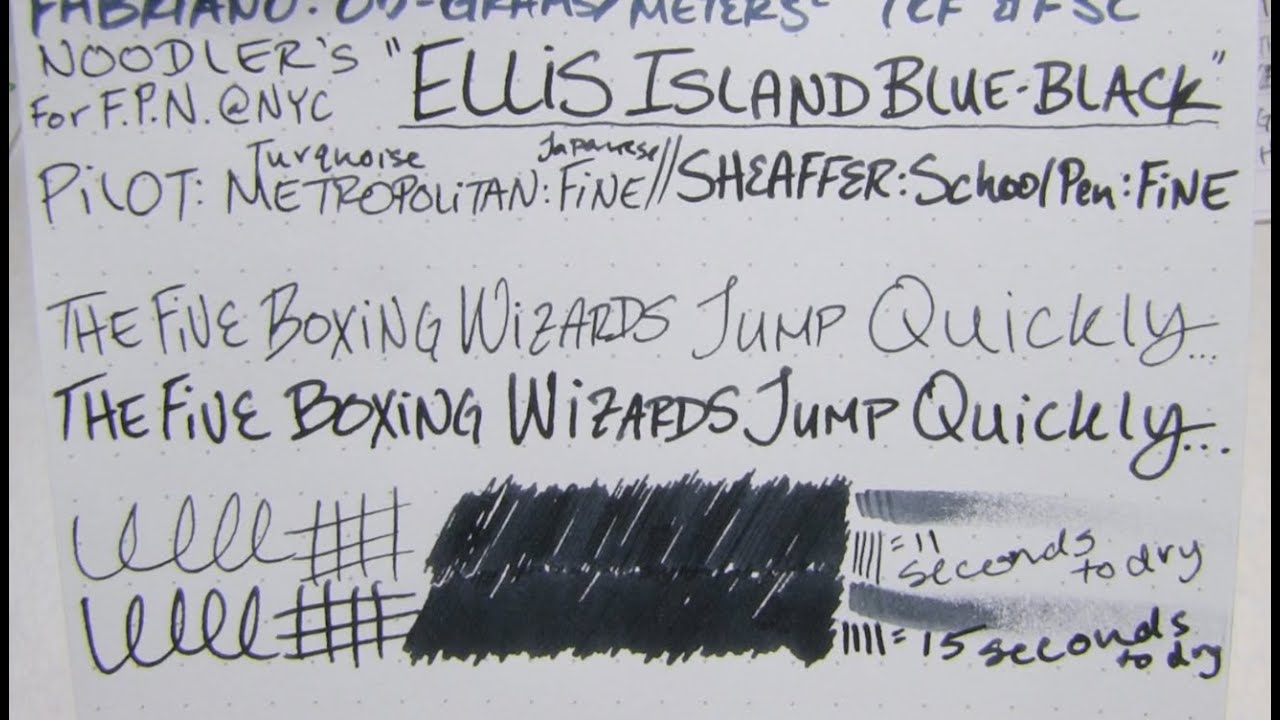 FABRIANO: GRAMS/METERS² &FSC
NOODLER'S "ELLiS ISLAND BLUE-BLACK"
For F.P.N. @NYC
Turquoise Japanese
PiLOT: METROPOLITAN: FiNE // SHEAFFER: School Pen: FiNE
THE FiVE BOXiNG WiZARDS JUMP Quickly...
THE FiVE BOXiNG WiZARDS JUMP Quickly...
= 11 seconds to dry
= 15 seconds to dry